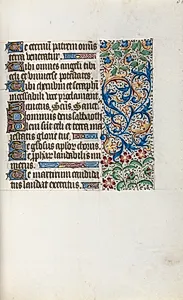 Te eternum patrem omnis
terra veneratur.
Tibi omnes angeli tibi
celi et universe potestates.
Tibi cherubin et seraphin
incessabili voce proclamant.
Sanctus, Scūs, Sanct
Dominus deus sabbaoth.
Pleni sunt celi et terra ma
iestatis glorie tue.
Te gloriosus aplorū chorus.
Te prophetarū laudabilis nu
merus.
Te martirum candida
tus laudat exercitus.